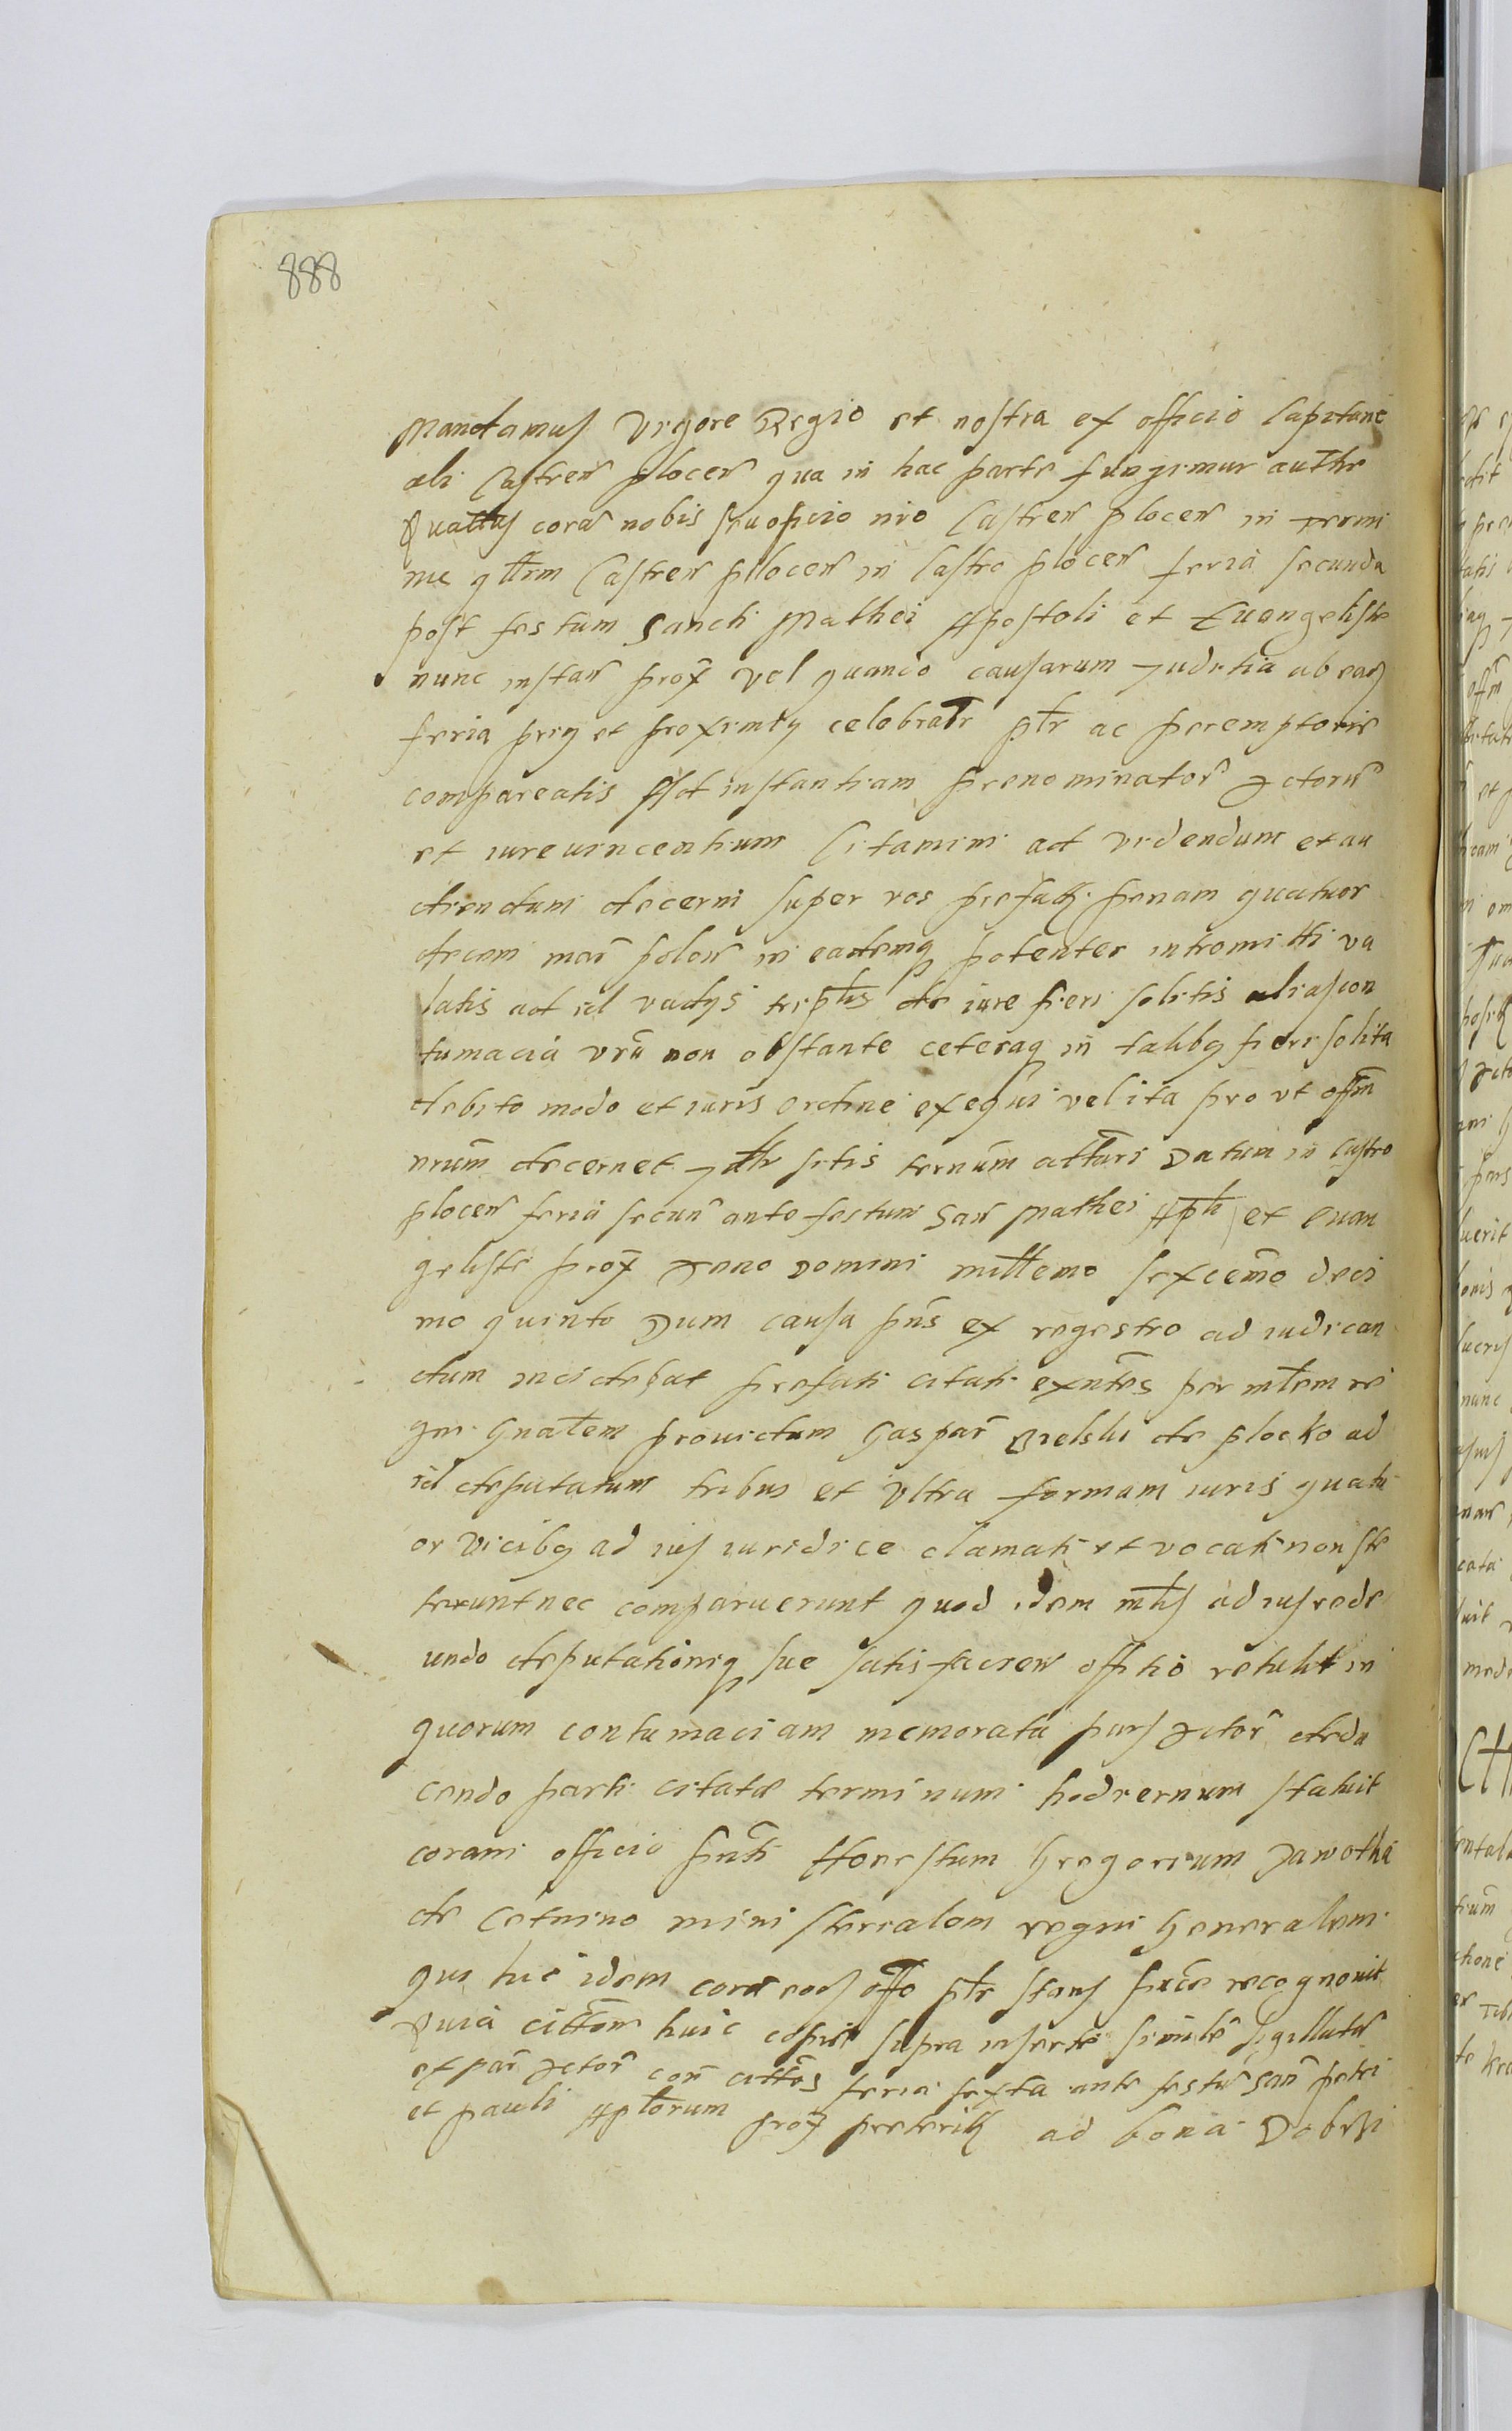 888
Mandamus vigore Regio et nostra ex officio Capitane
ali Castren̄ plocen̄ qua in hac parte fungimur authe
Quattus corā nobis seu officio nrō Castren̄ plocen̄ in termi
nis qttrm Castren̄ plocen̄ in Castro plocen̄ feria secunda
post festum Sancti Mathei Apostoli et Euangeliste
nunc instan̄ prox̄ vel quando causarum Juditia ab eadē
feria prox̄ et proximē celebrabr̄ ptr̄ ac peremptorie
compareatis Ad instantiam prenominator̄ Actorū
et iure vincentium Citamini ad videndum et au
diendum decerni super vos prefatꝭ penam quatuor
decem mar̄ polon̄ in eademqꝫ potenter intromitti va
latis ad id vadys triplts de iure fieri solitis alias con
tumacia vrā non obstante ceteraqꝫ in talibꝫ fieri solita
debito modo et iuris ordine exequi vel ita pro vt offm̄
nrum̄ decernet Jttr sitis term̄um atturi Datum in Castro
plocen̄ feria secun̄ ante festum San̄ Mathei Apli et euan
geliste prox̄ Anno Domini milltemo sexcem̄o deci
mo quinto Dum causa pn̄s ex regestro ad iudican
dum incidebat prefati citati exn̄tes per mtem re
gni Gnatem prouidum Gaspar̄ Bielski de plocko ad
id deputatum tribus et vltra formam iuris quatu
or vicibꝫ ad ius iuridice clamati et vocati non ste
terunt nec comparuerunt quod idem mtis ad ius rede
undo deputationiqꝫ sue satisfacien̄ offitio retulit in
quorum contumaciam memorata pars Actor̄ dedu
cendo parti citatæ terminum hodiernum statuit
coram officio pn̄ti Honestum Gregorium Jawotha
de Cetnino ministerialem regni Generalem
qui hic idem corā eodē offo ptr̄ stans recognouit
Quia cittom̄ huic copie supra inserte simile sigillatā
ex par̄ Actor̄ con̄ cittōs feria sexta ante festū San̄ petri
et pauli Aptorum prox̄ preteritꝭ ad bona Dobrsi